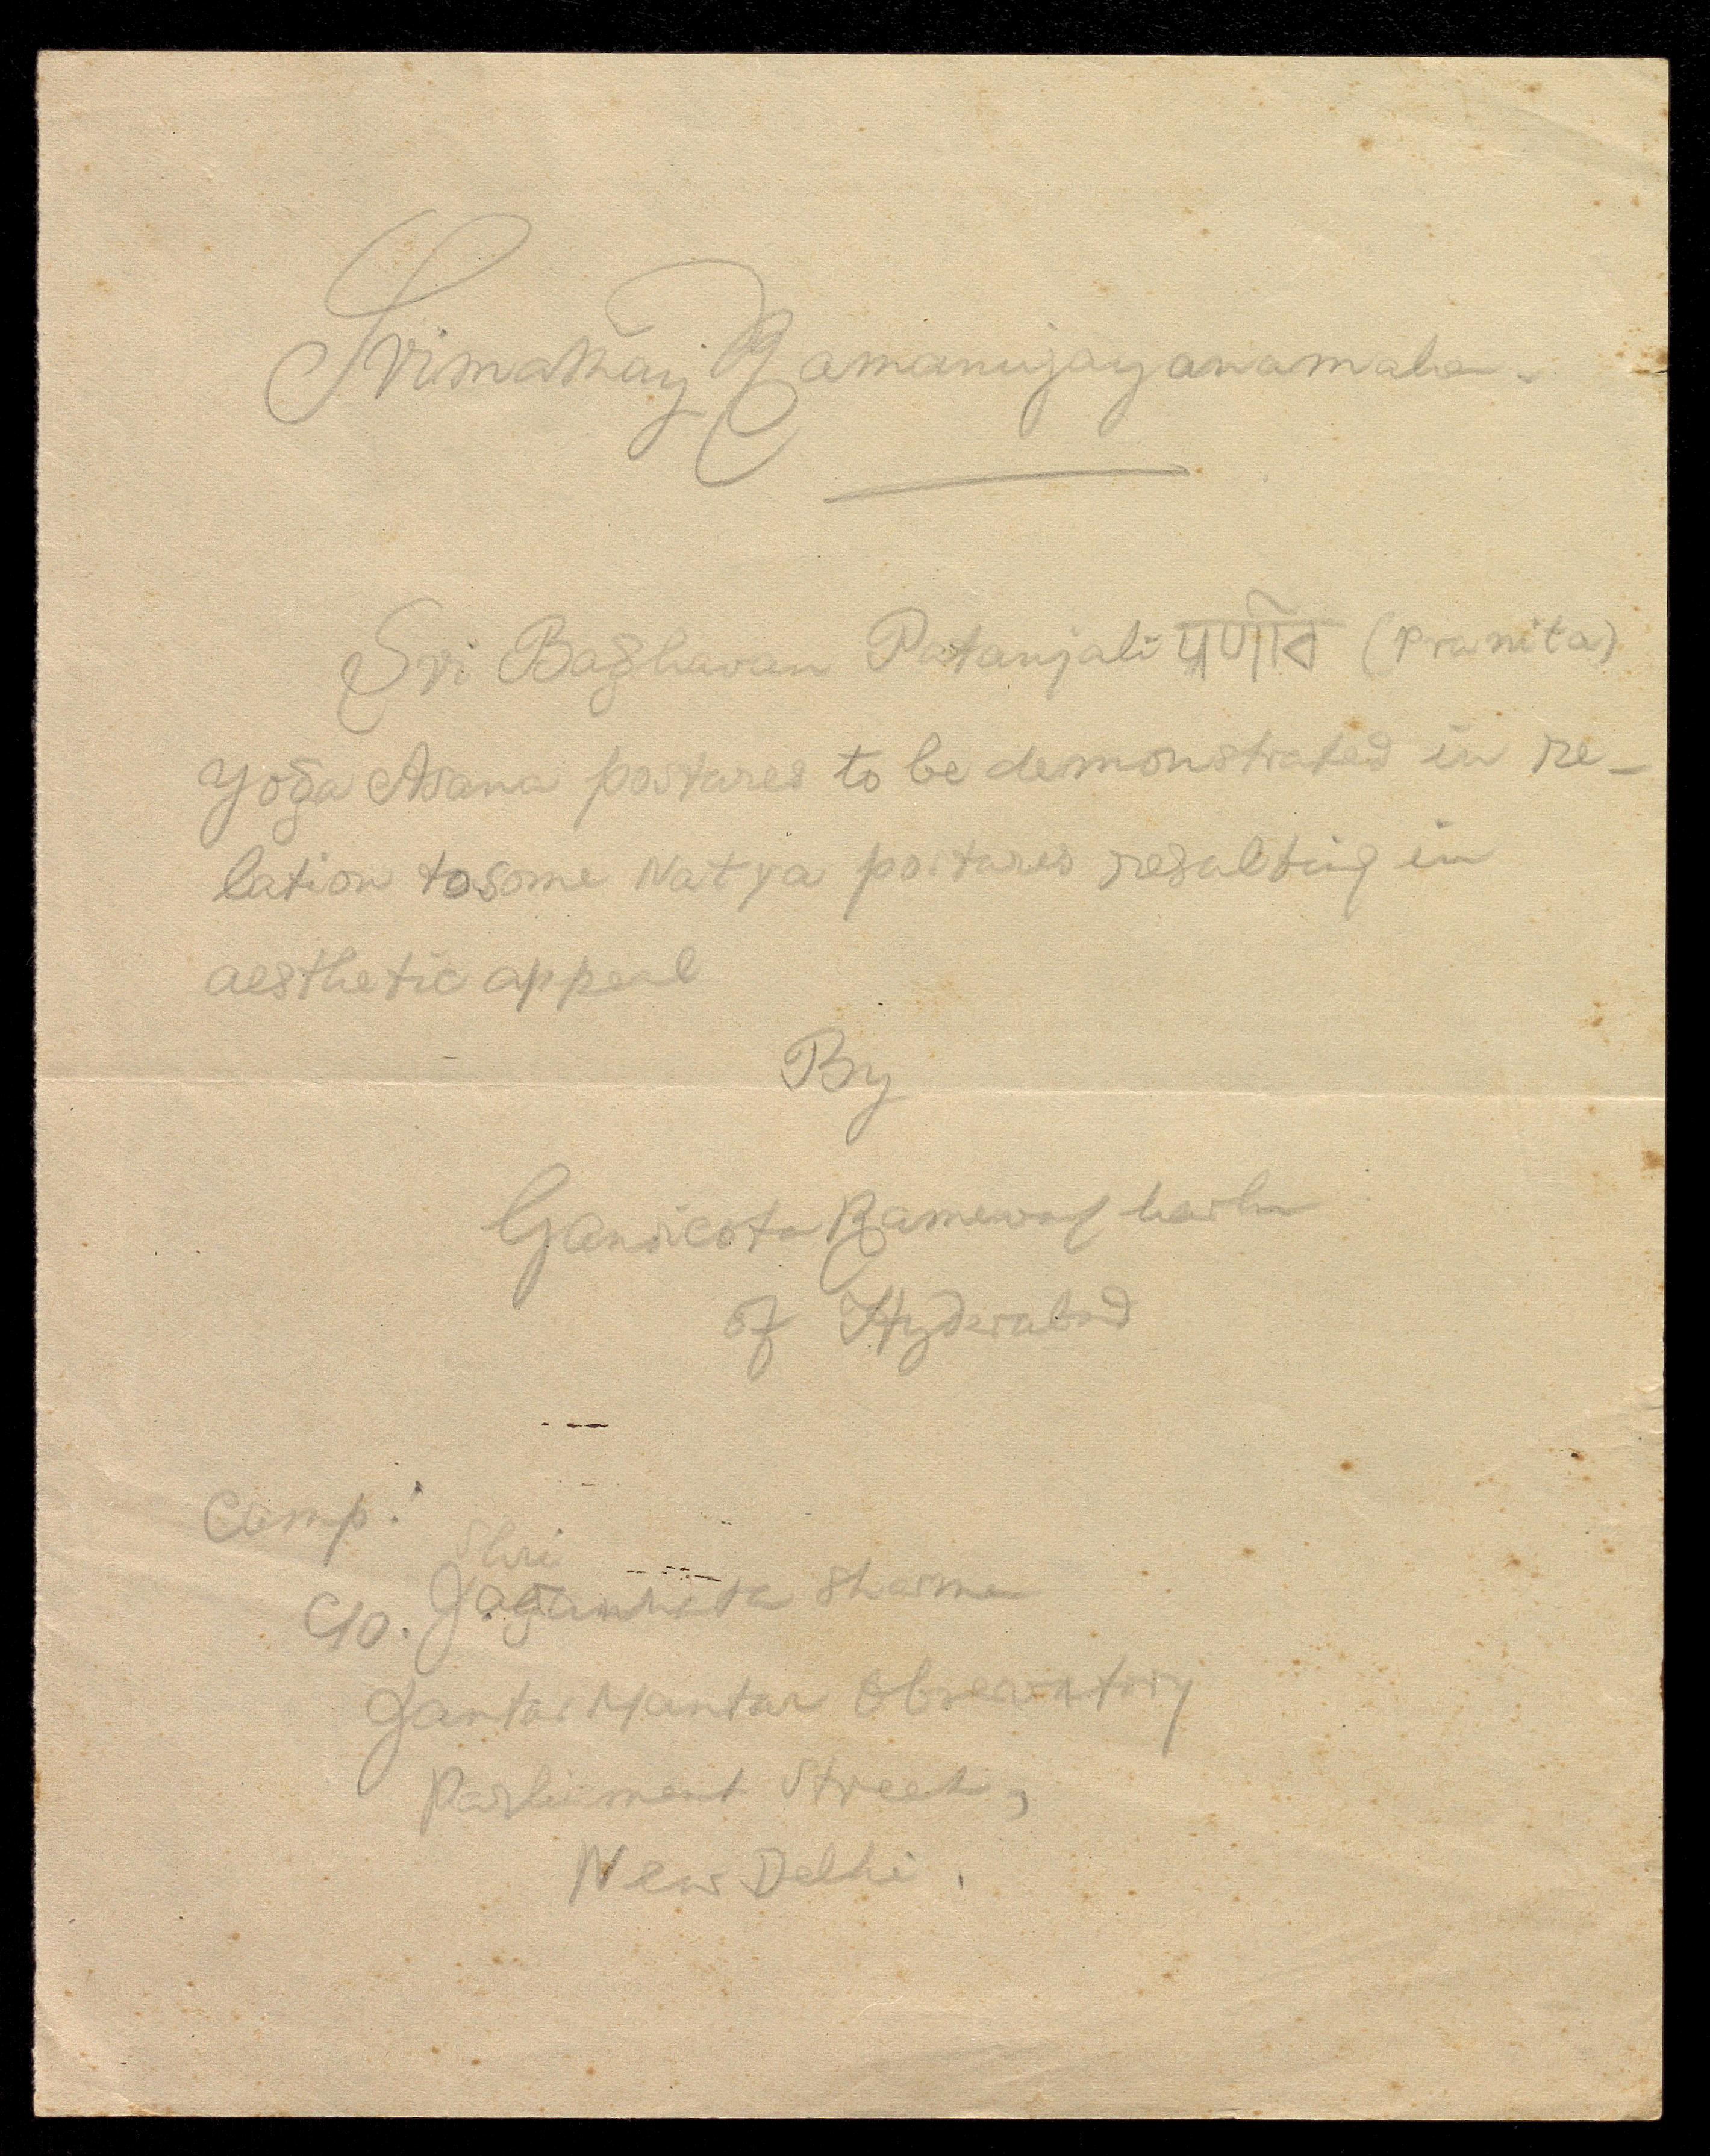 Srimathay Ramanujayanamaha.
Sri Baghavan Patanjali प्रणीत (Pranita)
Yoga Asana postures to be demonstrated in re-
lation to some Natya postures resulting in
aesthetic appeal
By
Gandicota
of Hyderabad
Camp:
Shri
C/o. Jagannata Sharma
Jantar Mantar Observatory
Parliament Street,
New Delhi.